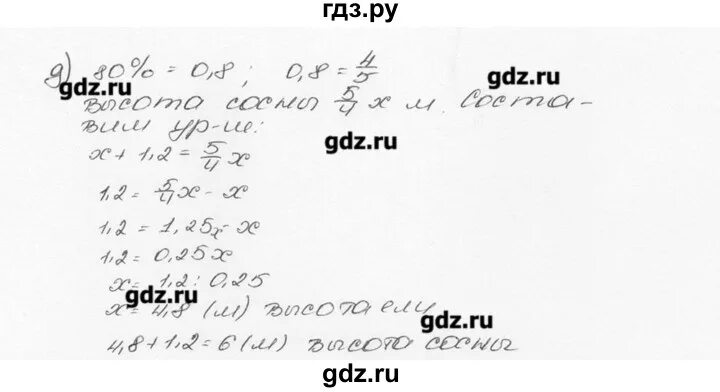 гдз.ру
д) 80% = 0,8 ; 0,8 = 4/5
gdz.ru
gdz.ru
высота сосны 5/4 x м. Соста-
вим ур-ие:
gdz.ru
x + 1,2 = 5/4 x
1,2 = 5/4 x - x
1,2 = 1,25x - x
1,2 = 0,25x
x = 1,2 : 0,25
gdz.ru
x = 4,8 (м) высота ели
gdz.ru
4,8 + 1,2 = 6 (м) высота сосны